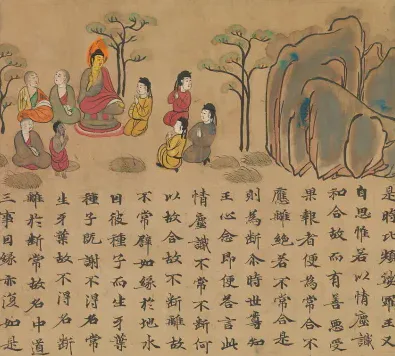 是時比頻娑羅王又
自思惟若以情塵識
和合故而有善惡受
果報者便為常合不
應離絕若不常合是
則為斷尒時世尊知
王心念即便答言此
情塵識不常不斷何
以故合故不斷離故
不常譬如緣於地水
因彼種子而生牙葉
種子既謝不得名常
生牙葉故不得名斷
離於斷常故名中道
三事因緣亦復如是